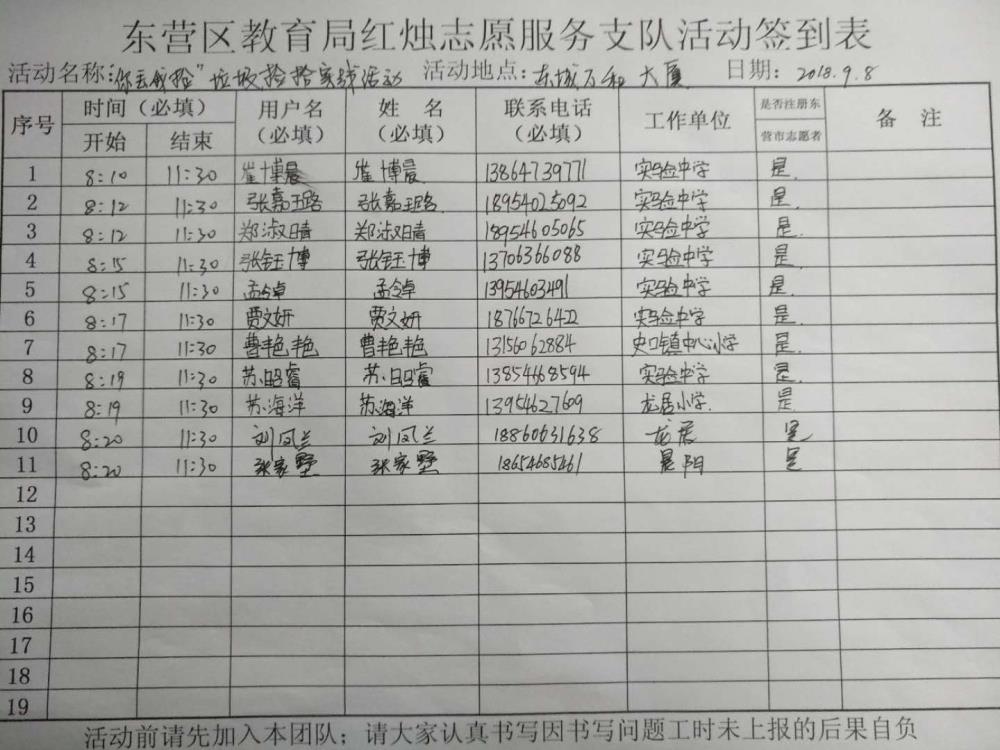 东营区教育局红烛志愿服务支队活动签到表
活动名称:"你丢我捡"垃圾捡拾实践活动 活动地点:东城万和大厦 日期:2018.9.8
序号 时间(必填) 用户名(必填) 姓名(必填) 联系电话(必填) 工作单位 是否注册东营市志愿者 备注
开始 结束
1 8:10 11:30 崔博晨 崔博晨 13864739771 实验中学 是
2 8:12 11:30 张嘉璐 张嘉璐 18954025092 实验中学 是
3 8:12 11:30 郑淑晴 郑淑晴 18954605065 实验中学 是
4 8:15 11:30 张钰博 张钰博 13706366088 实验中学 是
5 8:15 11:30 孟令卓 孟令卓 13954603491 实验中学 是
6 8:17 11:30 贾文妍 贾文妍 18766726422 实验中学 是
7 8:17 11:30 曹艳艳 曹艳艳 13156062884 史口镇中心小学 是
8 8:19 11:30 苏昭睿 苏昭睿 13854668594 实验中学 是
9 8:19 11:30 苏海洋 苏海洋 13954627609 龙居小学 是
10 8:20 11:30 刘凤兰 刘凤兰 18860631638 龙居 是
11 8:20 11:30 张家墅 张家墅 18654685461 晨阳 是
12
13
14
15
16
17
18
19
活动前请先加入本团队;请大家认真书写因书写问题工时未上报的后果自负